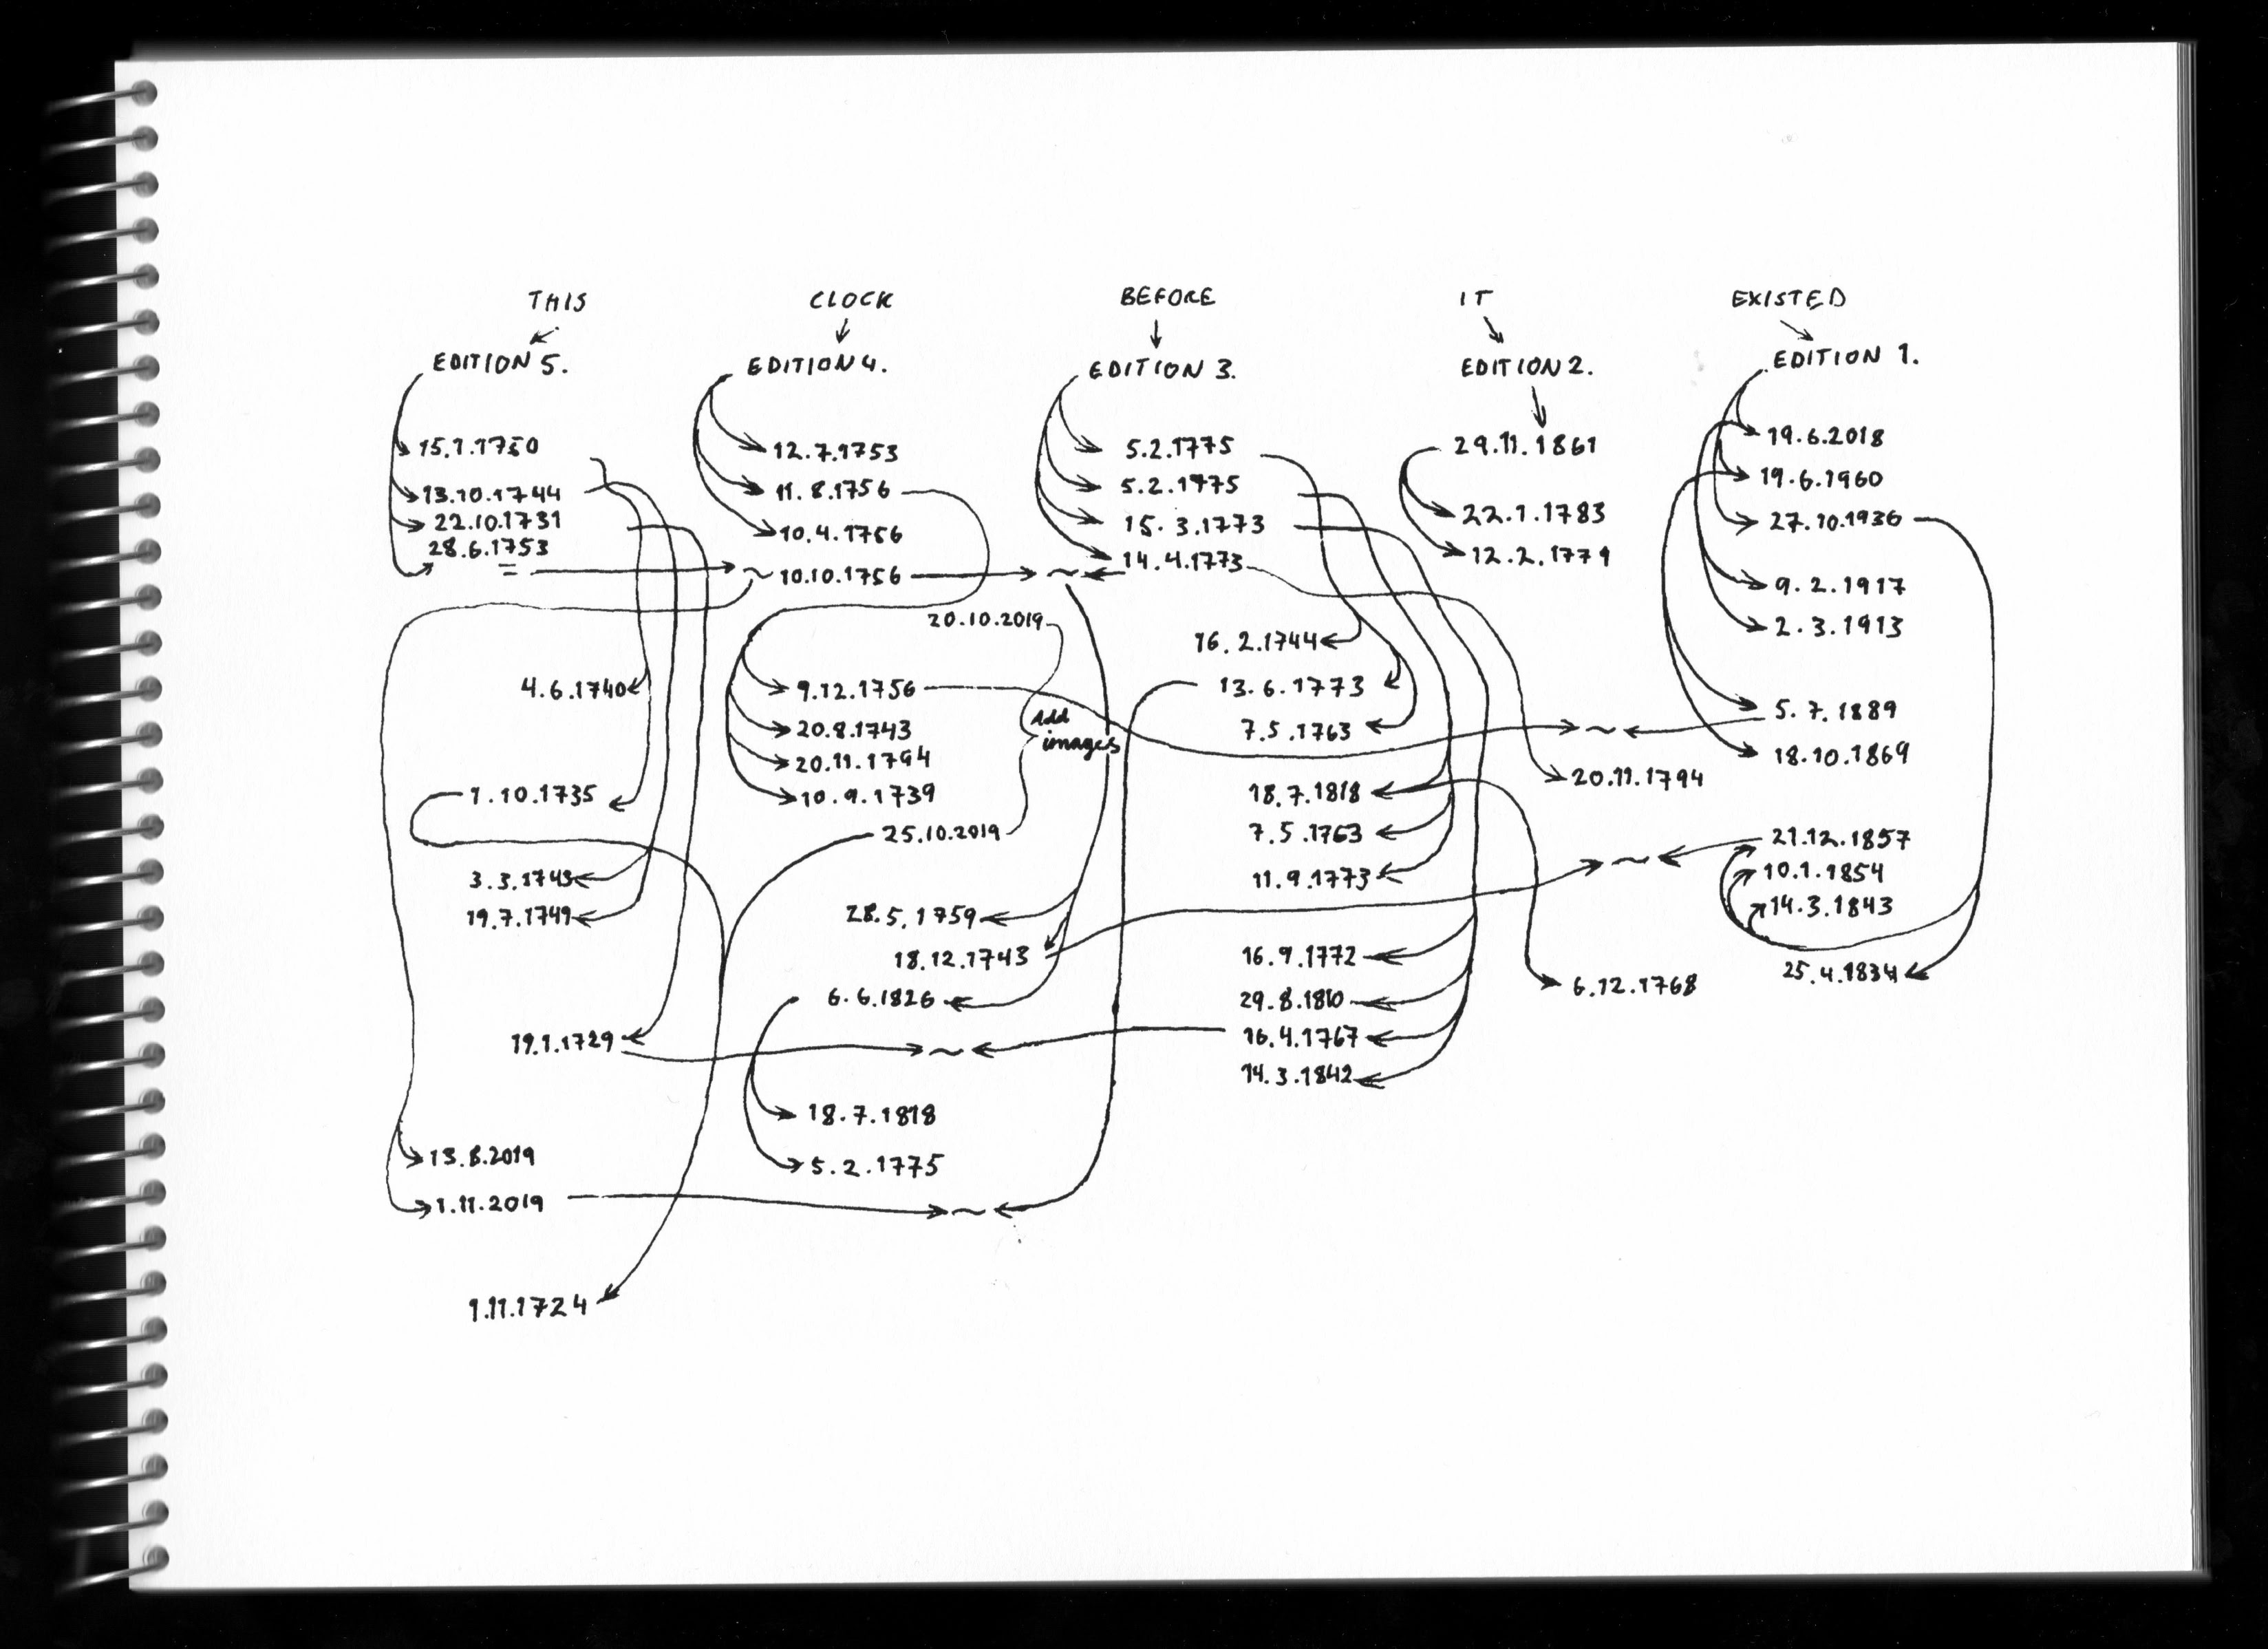 THIS
EDITION 5.
15.1.1750
13.10.1744
22.10.1731
28.6.1753
=
4.6.1740
1.10.1735
3.3.1743
19.7.1749
19.1.1729
13.8.2019
1.11.2019
1.11.1724
CLOCK
EDITION 4.
12.7.1753
11.8.1756
10.4.1756
~10.10.1756
20.10.2019
9.12.1756
20.8.1743
20.11.1794
10.9.1739
25.10.2019
Add
images
28.5.1759
18.12.1743
6.6.1826
~
18.7.1818
5.2.1775
~
BEFORE
EDITION 3.
5.2.1775
5.2.1775
15.3.1773
~
14.4.1773
16.2.1744
13.6.1773
7.5.1763
18.7.1818
7.5.1763
11.9.1773
16.9.1772
29.8.1810
16.4.1767
14.3.1842
IT
EDITION 2.
29.11.1861
22.1.1783
12.2.1779
~
20.11.1794
~
6.12.1768
EXISTED
EDITION 1.
19.6.2018
19.6.1960
27.10.1936
9.2.1917
2.3.1913
5.7.1889
18.10.1869
21.12.1857
10.1.1854
14.3.1843
25.4.1834